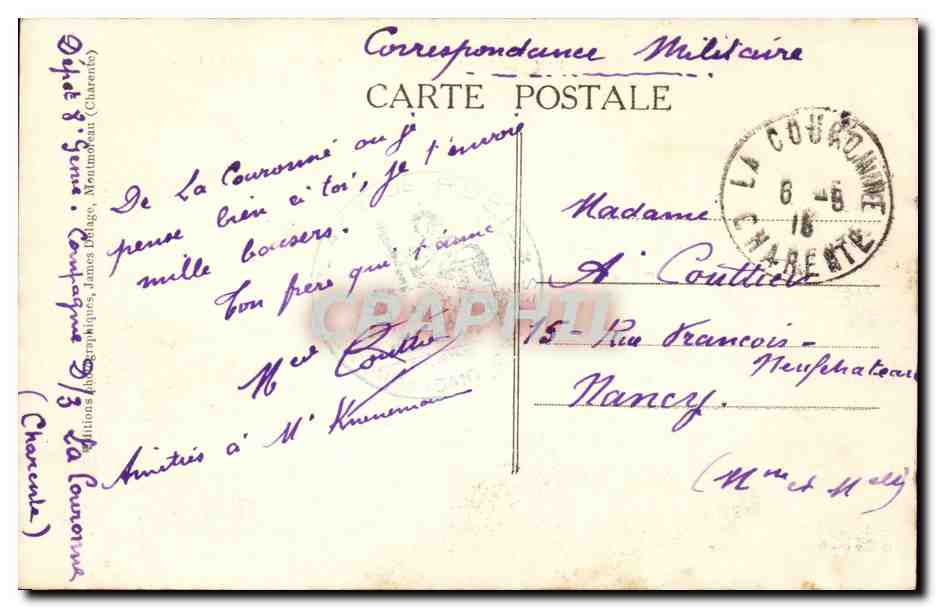 Correspondance Militaire
CARTE POSTALE
De La Couronne ou je
pense bien à toi, je t'envoie
mille baisers.
Ton frère qui t'aime
Mcel Couttie
Amitiés à Mr
Madame
A Couttier
15 - Rue François -
Neufchateau
Nancy.
(Mme et M
LA COURONNE
6 -6
16
CHARENTE
Dépôt 8e Génie. Compagnie D/3 La Couronne
(Charente)
Editions photographiques, James Delage, Montmoreau (Charente)
CPAPHIL